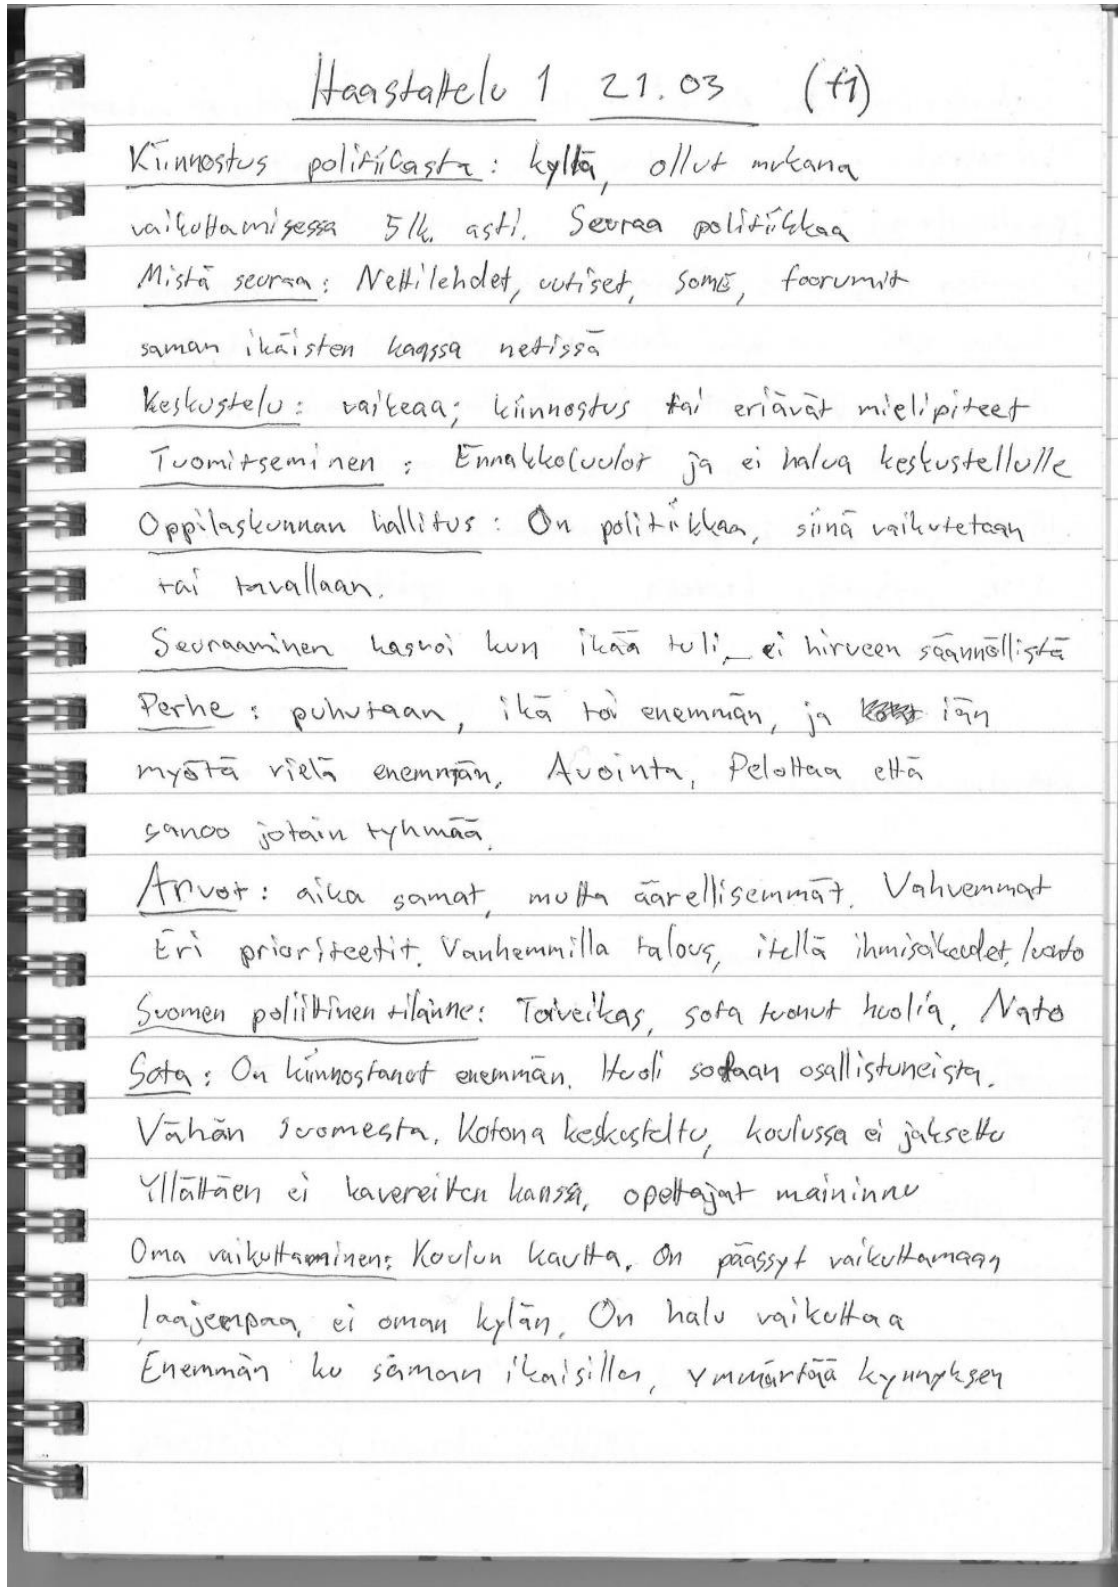 Haastattelu 1 21.03 (t1)
Kiinnostus politiikasta: kyllä, ollut mukana
vaikuttamisessa 5lk. asti. Seuraa politiikkaa
Mistä seuraa: Nettilehdet, uutiset, some, foorumit
saman ikäisten kanssa netissä
Keskustelu: vaikeaa; kiinnostus tai eriävät mielipiteet
Tuomitseminen: Ennakkoluulot ja ei halua keskustellulle
Oppilaskunnan hallitus: On politiikkaa, siinä vaikutetaan
tai tavallaan.
Seuraaminen kasvoi kun ikää tuli_ ei hirveen säännöllistä
Perhe: puhutaan, ikä toi enemmän, ja iän
myötä vielä enemmän. Avointa, Pelottaa että
sanoo jotain tyhmää.
Arvot: aika samat, mutta äärellisemmät. Vahvemmat
Eri prioriteetit. Vanhemmilla talous, itellä ihmisoikeudet, luonto
Suomen poliittinen tilanne: Toiveikas, sota tuonut huolia, Nato
Sota: On kiinnostanut enemmän. Huoli sodaan osallistuneista.
Vähän Suomesta. Kotona keskusteltu, koulussa ei jaksettu
Yllättäen ei kavereitten kanssa, opettajat maininnu
Oma vaikuttaminen: Koulun kautta. On päässyt vaikuttamaan
laajempaa, ei oman kylän. On halu vaikuttaa
Enemmän ku saman ikaisillan, Ymmärtää kynnyksen